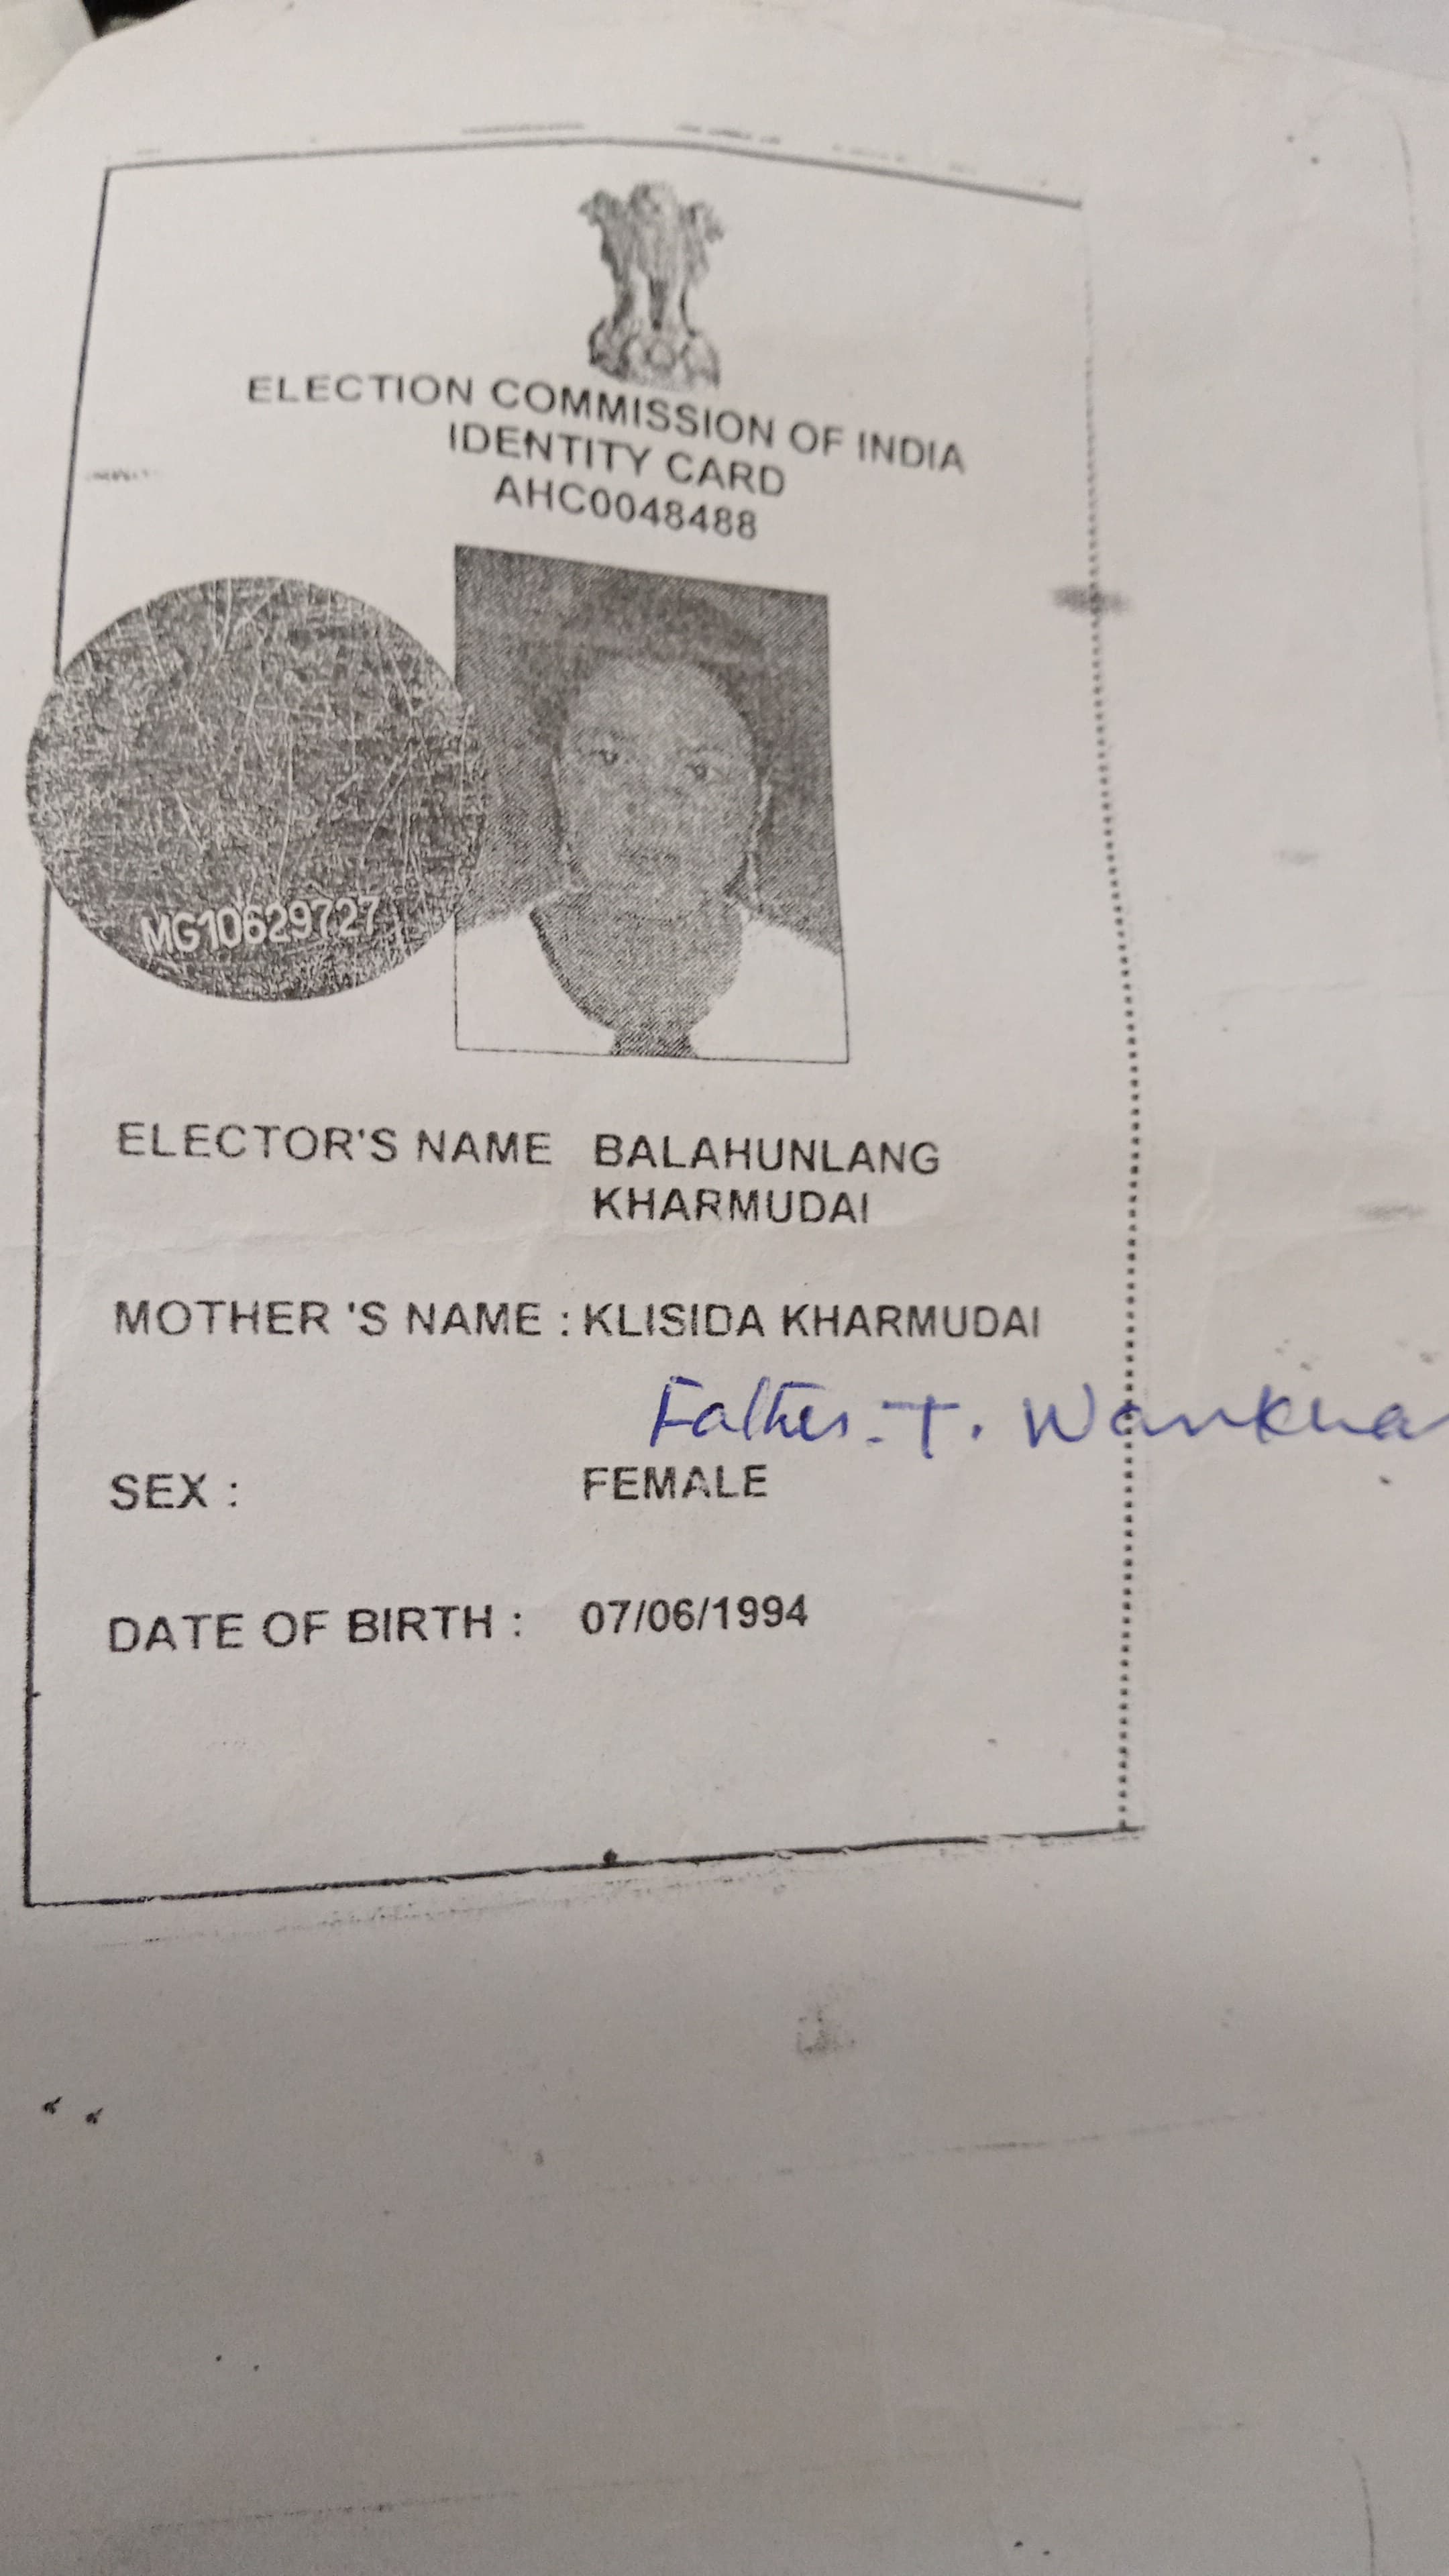 ELECTION COMMISSION OF INDIA
IDENTITY CARD
AHC0048488
MG10629727
ELECTOR'S NAME BALAHUNLANG
KHARMUDAI
MOTHER 'S NAME : KLISIDA KHARMUDAI
Father. T. Wankha
SEX : FEMALE
DATE OF BIRTH : 07/06/1994